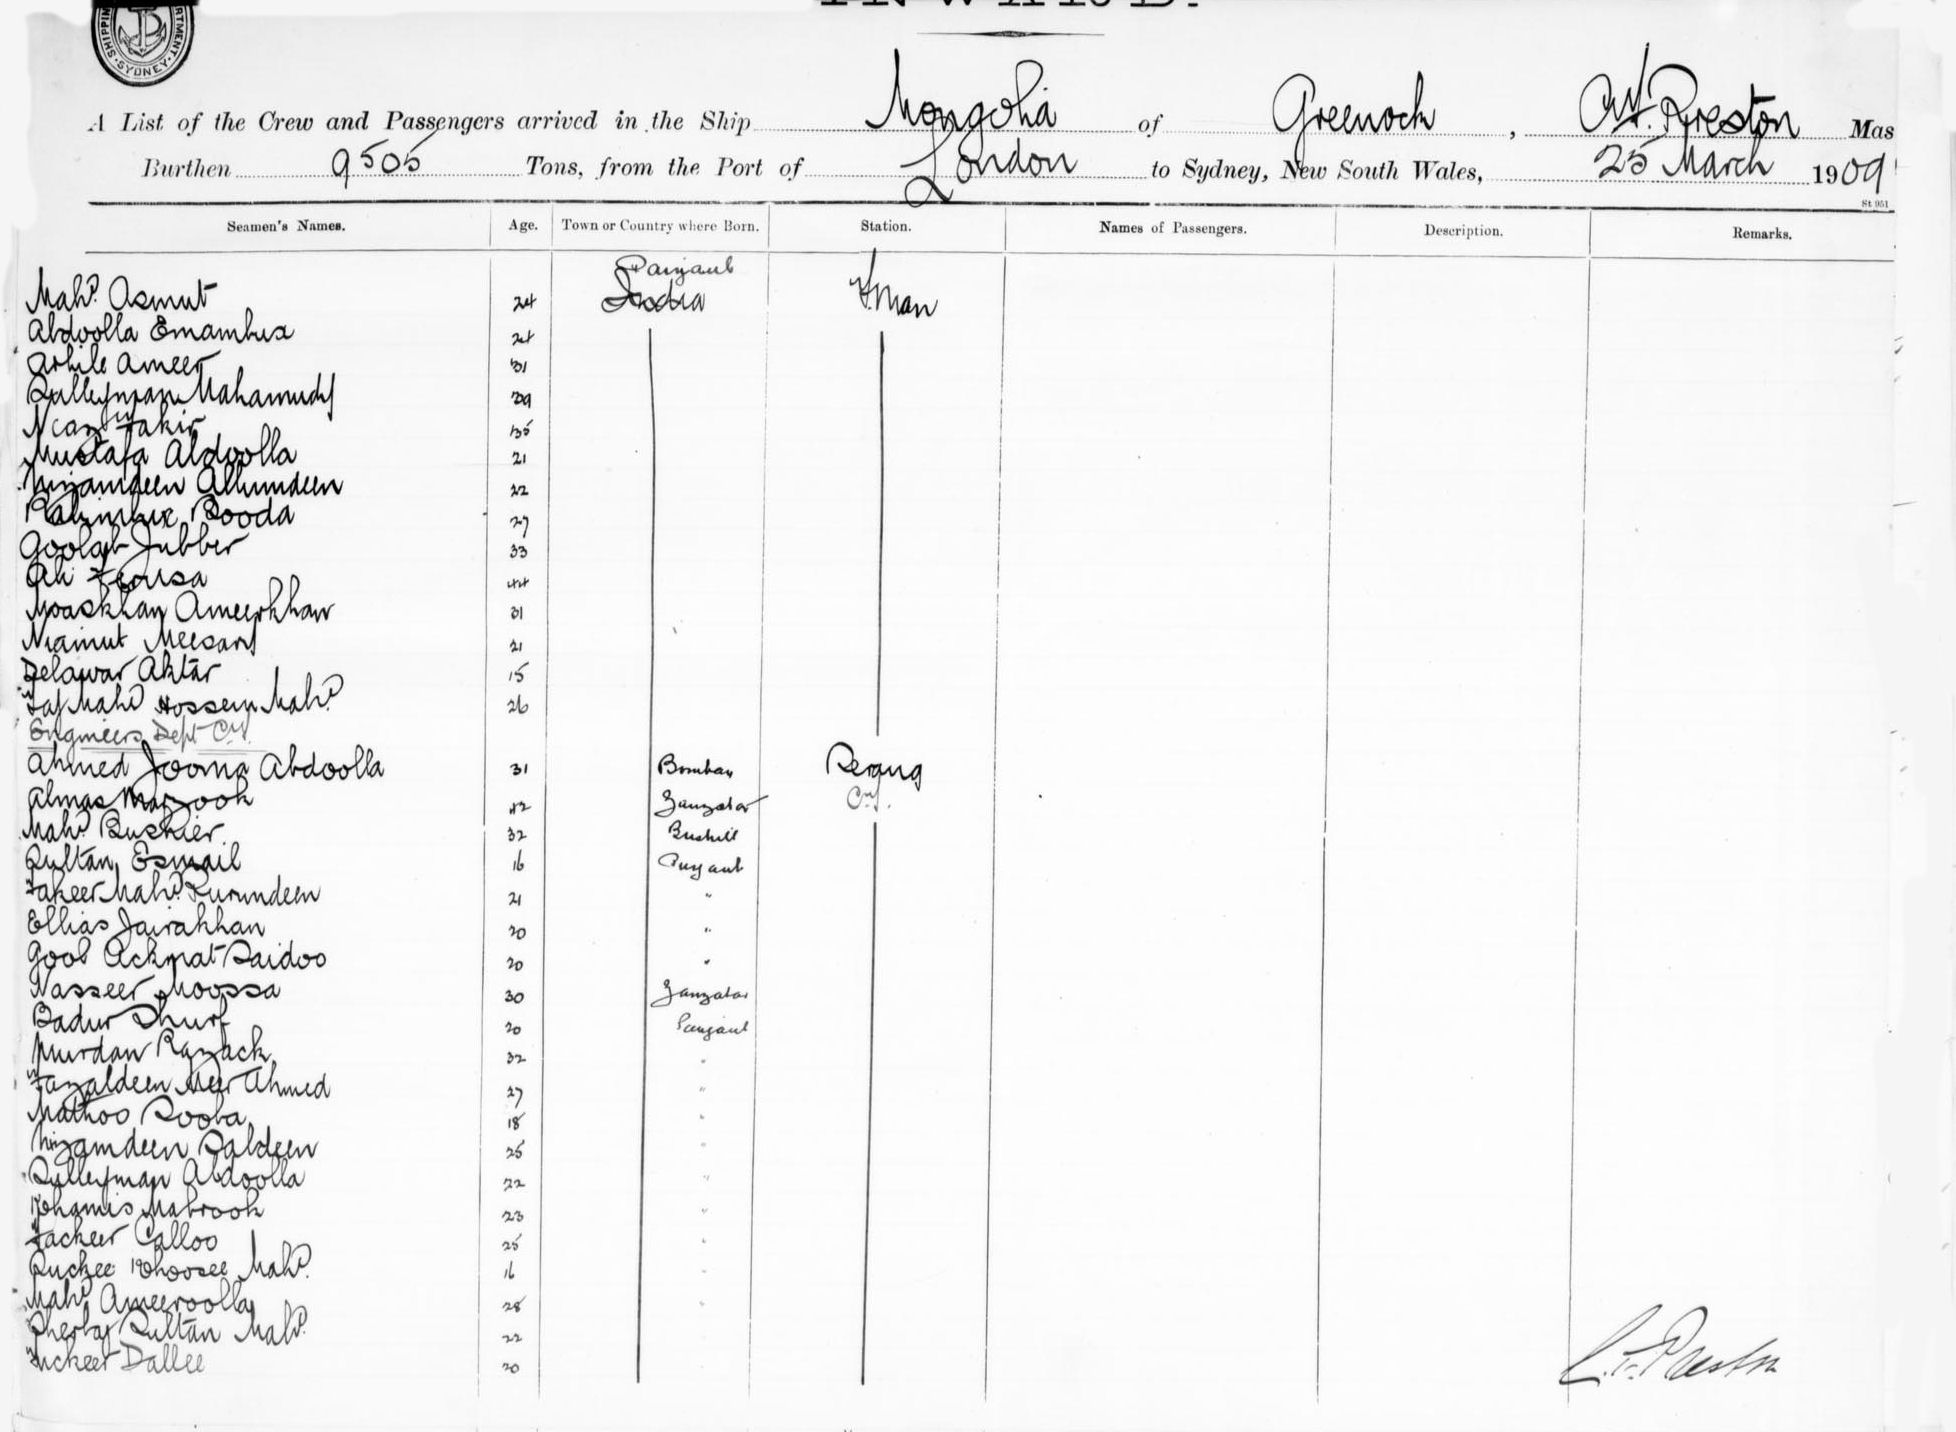 SHIPPING DEPARTMENT SYDNEY
INWARD.
A List of the Crew and Passengers arrived in the Ship Mongolia of Greenock, Preston Mas
Burthen 9505 Tons, from the Port of London to Sydney, New South Wales, 25 March 1909
St 951
Seamen's Names. Age. Town or Country where Born. Station. Names of Passengers. Description. Remarks.
Punjaub
Mahd. Asmut 24 India F.man
Abdoolla Emambux 24
Ameer 31
Sulleyman Mahamudf 39
Niaz Fakir 35
Mustafa Abdoolla 21
Nizamdeen Allumdeen 22
Rahimbux Booda 27
Goolab Jubber 33
Ali 44
Moaskhan Ameerkhan 31
Niamut Meesarf 21
Delawar Aktar 15
Taj Mahd Hossein Mahd. 26
Engineers Dept
Ahmed Jooma Abdoolla 31 Bombay Serang
Almas Marzook 42 Zanzabar
Mahd. Bushier 32
Sultan Esmail 16 Punjaub
Fakeer Mahd. Rurundeen 21 "
Ellias Jairakhan 20 "
Gool Ackmat Saidoo 20 "
Nasseer Moossa 30 Zanzabar
Badur Shurf 20 Punjaub
Murdan Razack 32 "
Fazaldeen Meer Ahmed 27 "
Mathoo Sooba 18 "
Nizamdeen Saldeen 25 "
Sulleyman Abdoolla 22 "
Khamis Mabrook 23 "
Fackeer Calloo 25 "
Ruckee Khoosee Mahd. 16 "
Mahd Ameeroolla 28 "
Sherbaj Sultan Mahd. 22
Fuckeer Dallee 20
Preston